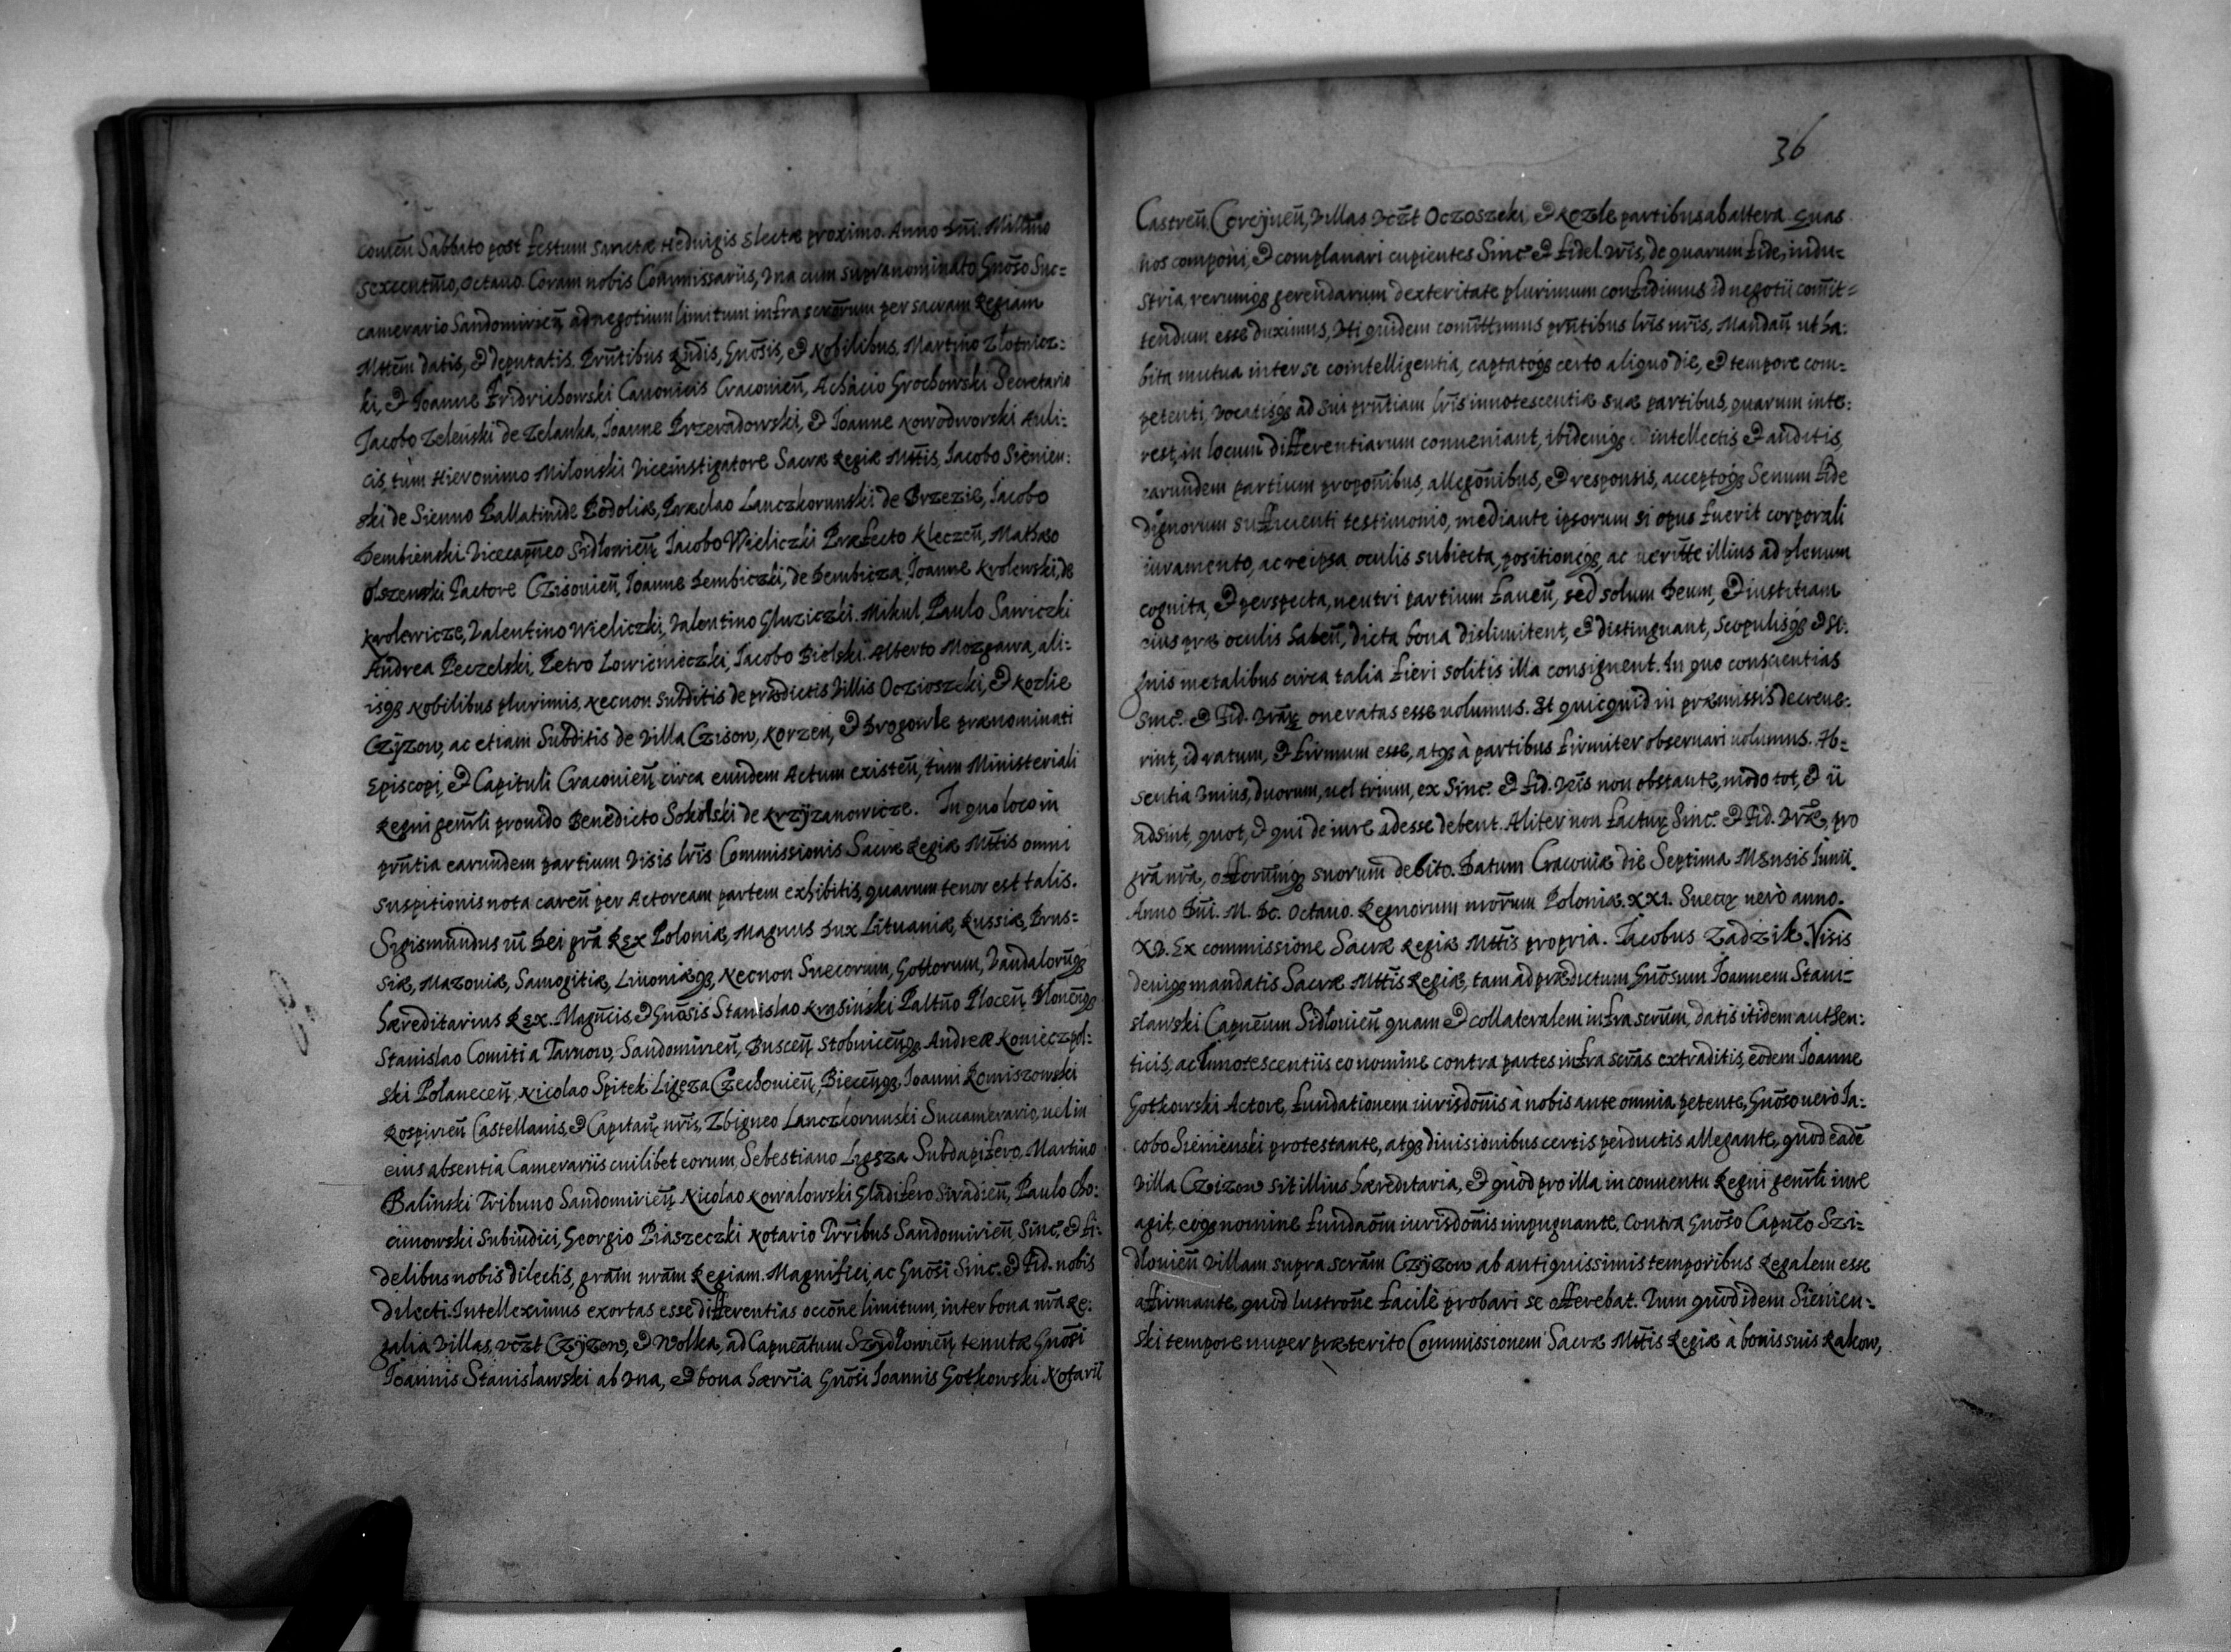 comeñ Sabbato post festum Sanctæ Heduigis Electæ proximo. Anno Dni. Millmo
Sexcentmo, Octauo. Coram nobis Commissariis, Vna cum supranominato Gnõso Suc=
camerario Sandomirieñ ad negotium limitum infrascrõrum per sacram Regiam
Mttem datis, & deputatis. Prñtibus Rñdis, Gnõsis, & Nobilibus, Martino Złotnicz:
ki, & Joanne Fridrichowski Canonicis Cracouieñ, Achacio Grochowski Secretario
Jacobo Zeleński de Zelanka, Joanne Przeradowski, & Joanne Nowodworski Auli:
cis, tùm Hieronimo Miłonski Viceinstigatore Sacræ Regiæ Mttis, Jacobo Sienien:
ski de Sienno Pallatinide Podoliæ, Præclao Lanczkorunski de Brzezie, Jacobo
Dembienski Vicecapñeo Sidłouieñ, Jacobo Wieliczki Præfecto Kleczeñ, Mathæo
Olszenski Factore Czisouieñ, Joanne Dembiczki, de Dembicza, Joanne Krolewski, de
Krolewicze, Valentino Wieliczki, Valentino Gluziczki. Mikul, Paulo Sawiczki
Andrea Peczelski, Petro Lowienieczki, Jacobo Bielski. Alberto Mozgawa, ali:
isq3 Nobilibus plurimis, Necnon subditis de prædictis Villis Oczioszeki, & Kozlie
Czÿzow, ac etiam Subditis de Villa Czisow, Korzen, & Drogowle prænominati
Episcopi, & Capituli Cracouieñ circa eundem Actum existeñ, tùm Ministeriali
Regni genrli prouido Benedicto Sokołski de Krzÿzanowicze. In quo loco in
prñtia earundem partium Visis lris Commissionis Sacræ Regiæ Mttis omni
suspitionis nota careñ per Actoream partem exhibitis, quarum tenor est talis.
Sigismundus iii Dei grã Rex Poloniæ, Magnus Dux Lituaniæ, Russiæ, Prus=
siæ, Mazouiæ, Samogitiæ, Liuoniæq3, Necnon Suecorum, Gottorum, Vandalorumq3
hæreditarius Rex. Magñcis, & Gnõsis Stanislao Krasiński Paltño Płoceñ,
Stanislao Comiti a Tarnow, Sandomirieñ, Busceñ Stobniceñq3 Andreæ Koniecpol:
ski Połaneceñ, Nicolao Spitek Ligęza Czechouieñ, Bieceñq3, Joanni Komiszowski
Rospirieñ Castellanis, & Capitañ nris, Zbigneo Lanczkorunski Succamerario, uel in
eius absentia Camerariis cuilibet eorum, Sebestiano Ligęza Subdapifero, Martino
Balinski Tribuno Sandomirieñ Nicolao Kowalowski Gladifero Siradieñ, Paulo Cho:
cimowski Subiudici, Georgio Piaszeczki Notario Trribus Sandomirieñ, Sinc. & fi:
delibus nobis dilectis, grãm nrãm Regiam. Magnifici, ac Gnõsi Sinc. & Fid. nobis
dilecti. Intelleximus exortas esse differentias occõne limitum, inter bona nrã Re:
galia Villas, Vczt Czÿzow, & Wolka, ad Capneãtum Szÿdłowieñ, tenutæ Gnõsi
Joannis Stanisławski ab Vna, & bona hærria Gnõsi Joannis Gotkowski Notarii
36
Castreñ Corcÿneñ, Villas Vczt Oczoszeki, & Kozle partibus ab altera. Quas
nos componi, & complanari cupientes Sinc. & fidel. Vris, de quarum fide, indu=
stria, rerumq3 gerendarum dexteritate plurimum confidimus id negotii comit=
tendum esse duximus, Vti quidem comittimus prñtibus lris nris, Mandañ ut ha:
bita mutua inter se cointelligentia, captatoq3 certo aliquo die, & tempore com=
petenti, Vocatisq3 ad sui prñtiam lris innotescentiæ suæ partibus, quarum inte:
rest, in locum differentiarum conueniant, ibidemq3 intellectis & auditis,
earundem partium proponibus, allegõnibus, & responsis, acceptoq3 Senum fide
dignorum sufficienti testimonio, mediante ipsorum si opus fuerit corporali
iuramento, ac reipsa oculis subiecta, positioneq3, ac ueritte illius ad plenum
cognita, & perspecta, neutri partium faueñ, sed solum Deum, & iustitiam
eius præ oculis habeñ, dicta bona dislimitent, & distinguant, Scopulisq3 & si:
gnis metalibus circa talia fieri solitis illa consignent. In quo conscientias
Sinc. & Fid. Vrãrum oneratas esse uolumus. Et quicquid in præmissis decreue:
rint, id ratum, & firmum esse, atq3 à partibus firmiter obseruari uolumus. Ab=
sentia Vnius, duorum, uel trium, ex Sinc. & fid. Vris non obstante, modo tot, & ii
adsint, quot, & qui de iure adesse debent. Aliter non facturę Sinc. & Fid. Vræ, pro
grã nrã, officiorumq3 suorum debito. Datum Cracouiæ die Septima Mensis Junii.
Anno Dni. M. Dc. Octauo. Regnorum nrorum Poloniæ. XXI. Sueciæ uerò anno.
XV. Ex commissione Sacræ Regiæ Mttis propria. Jacobus Zadzik. Visis
deniq3 mandatis Sacræ Mttis Regiæ, tam ad prædictum Gnõsum Joannem Stani=
sławski Capneum Sidłouieñ quam & collateralem infrascrum, datis itidem authen:
ticis, ac Innotescentiis eo nomine contra partes infrascras extraditis, eodem Joanne
Gotkowski Actore, fundationem iurisdõnis à nobis ante omnia petente, Gnõso uerò Ja:
cobo Sienienski protestante, atq3 diuisionibus certis perductis allegante, quod eadẽ
Villa Czizow sit illius hæreditaria, & quòd pro illa in conuentu Regni genrli iure
agit, eoq3 nomine fundaõm iurisdõnis inpugnante, Contra Gnõso Capneo Szi=
dłouieñ Villam suprascrãm Czÿzow ab antiquissimis temporibus Regalem esse
affirmante, quod lustrõne facilè probari se offerebat. Tum quòd idem Sienien=
ski tempore nuper præterito Commissionem Sacræ Mttis Regiæ à bonis suis Rakow,